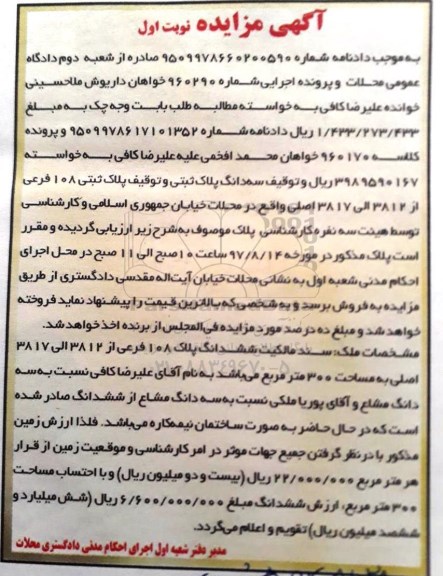 آگهی مزایده نوبت اول
به موجب دادنامه شماره ۹۵۰۹۹۷۸۶۶۰۲۰۰۵۹۰ صادره از شعبه دوم دادگاه
عمومی محلات و پرونده اجرایی شماره ۹۶۰۲۹۰ خواهان داریوش ملاحسینی
خوانده علیرضا کافی به خواسته مطالبه طلب بابت وجه چک به مبلغ
۱/۴۳۳/۲۷۳/۴۳۳ ریال دادنامه شماره ۹۵۰۹۹۷۸۶۱۷۱۰۱۳۵۲ و پرونده
کلاسه ۹۶۰۱۷۰ خواهان محمد افخمی علیه علیرضا کافی به خواسته
۳۹۸۹۵۹۰۱۶۷ ریال و توقیف سه دانگ پلاک ثبتی و توقیف پلاک ثبتی ۱۰۸ فرعی
از ۳۸۱۲ الی ۳۸۱۷ اصلی واقع در محلات خیابان جمهوری اسلامی و کارشناسی
توسط هیئت سه نفره کارشناسی پلاک موصوف به شرح زیر ارزیابی گردیده و مقرر
است پلاک مذکور در مورخه ۹۷/۸/۱۴ ساعت ۱۰ صبح الی ۱۱ صبح در محل اجرای
احکام مدنی شعبه اول به نشانی محلات خیابان آیت اله مقدسی دادگستری از طریق
مزایده به فروش برسد و به شخصی که بالاترین قیمت را پیشنهاد نماید فروخته
خواهد شد و مبلغ ده درصد مورد مزایده فی المجلس از برنده اخذ خواهد شد.
مشخصات ملک: سند مالکیت ششدانگ پلاک ۱۰۸ فرعی از ۳۸۱۲ الی ۳۸۱۷
اصلی به مساحت ۳۰۰ متر مربع می باشد به نام آقای علیرضا کافی نسبت به سه
دانگ مشاع و آقای پوریا ملکی نسبت به سه دانگ مشاع از ششدانگ صادر شده
است که در حال حاضر به صورت ساختمان نیمه کاره می باشد. فلذا ارزش زمین
مذکور با در نظر گرفتن جمیع جهات موثر در امر کارشناسی و موقعیت زمین از قرار
هر متر مربع ۲۲/۰۰۰/۰۰۰ ریال (بیست و دو میلیون ریال) و با احتساب مساحت
۳۰۰ متر مربع، ارزش ششدانگ مبلغ ۶/۶۰۰/۰۰۰/۰۰۰ ریال (شش میلیارد و
ششصد میلیون ریال) تقویم و اعلام می گردد.
مدیر دفتر شعبه اول اجرای احکام مدنی دادگستری محلات